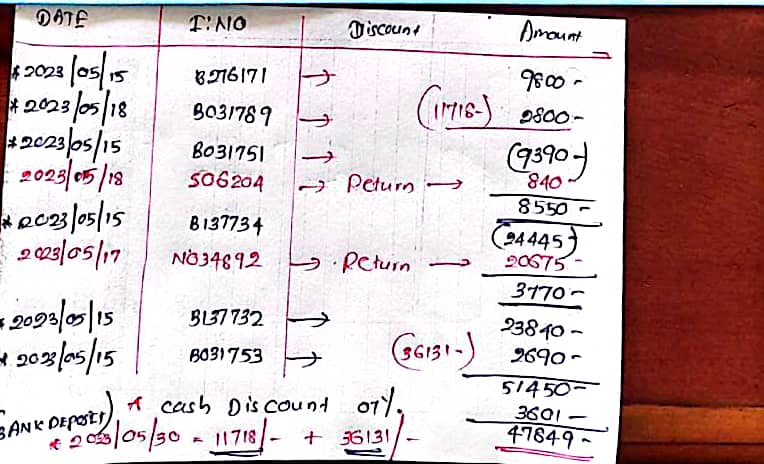 DATE I:NO Discount Amount
* 2023/05/15 B276171 → 9800-
* 2023/05/18 B031789 → (11718-) 2800-
* 2023/05/15 B031751 → (9390-)
2023/05/18 S06204 → Return → 840-
8550-
* 2023/05/15 B137734 (24445-)
2023/05/17 N034892 → Return → 20675-
3770-
* 2023/05/15 B137732 → 23840-
* 2023/05/15 B031753 → (36131-) 2690-
51450-
A cash Discount 07%. 3601-
BANK DEPOSIT) * 2023/05/30 = 11718/- + 36131/- 47849-